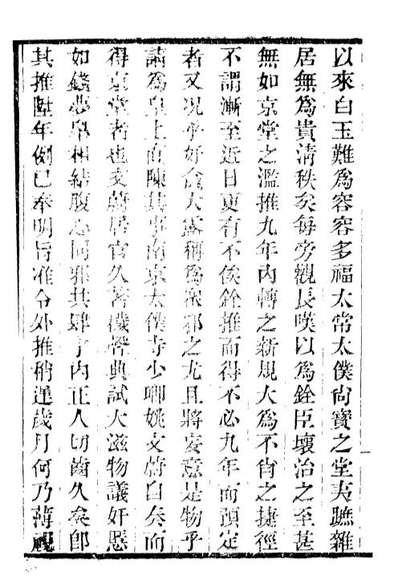 以來白玉難爲容容多福太常太僕尙寶之堂夷蹠雜
居無爲貴清秩矣每旁觀長嘆以爲銓臣壞治之至甚
無如京堂之濫推九年內轉之新規大爲不肖之捷徑
不謂漸至近日更有不俟銓推而得不必九年而預定
者又況乎好貪大露稱爲衆邪之尤且將妄意是物乎
請爲皇上而陳其事南京太僕寺少卿姚文蔚自矣而
得京堂者也文蔚居官久著穢聲典試大滋物議奸慝
如錢夢皐相結腹心同雅其肆丁內正人切齒久矣郎
其推陞年例已奉明旨准令外推稍遲歲月何乃薄視